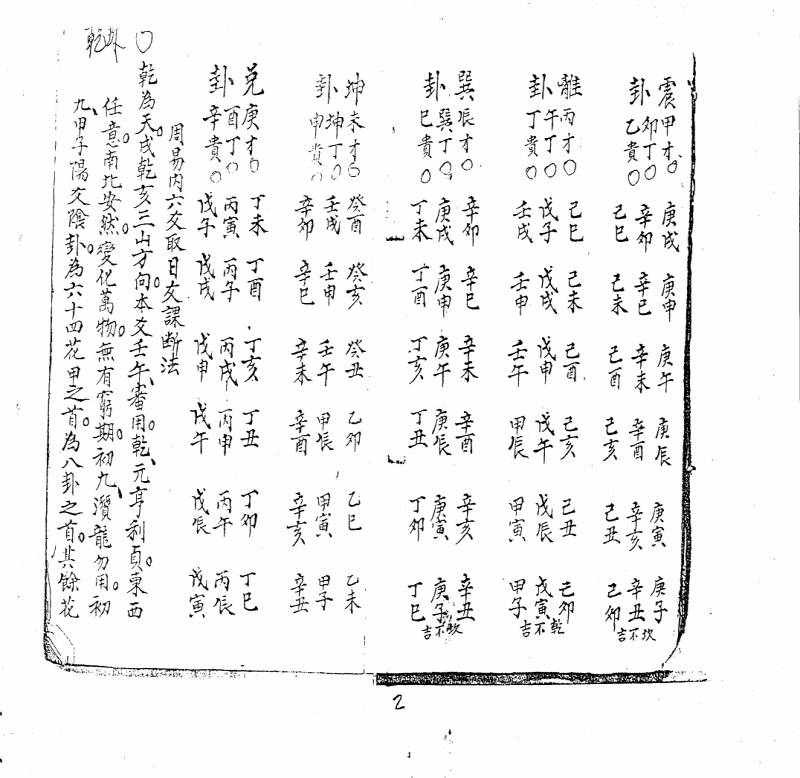 震甲才○ 庚戌 庚申 庚午 庚辰 庚寅 庚子
卯丁○ 辛卯 辛巳 辛未 辛酉 辛亥 辛丑 坎不吉
卦乙貴○ 己巳 己未 己酉 己亥 己丑 己卯
離丙才○ 己巳 己未 己酉 己亥 己丑 己卯
午丁○ 戊子 戊戌 戊申 戊午 戊辰 戊寅 乾不吉
卦丁貴○ 壬戌 壬申 壬午 甲辰 甲寅 甲子
巽辰才○ 辛卯 辛巳 辛未 辛酉 辛亥 辛丑
巽丁○ 庚戌 庚申 庚午 庚辰 庚寅 庚子 坎不吉
卦巳貴○ 丁未 丁酉 丁亥 丁丑 丁卯 丁巳
坤未才○ 癸酉 癸亥 癸丑 乙卯 乙巳 乙未
坤丁○ 壬戌 壬申 壬午 甲辰 甲寅 甲子
卦申貴○ 辛卯 辛巳 辛未 辛酉 辛亥 辛丑
兌庚才○ 丁未 丁酉 丁亥 丁丑 丁卯 丁巳
酉丁○ 丙寅 丙子 丙戌 丙申 丙午 丙辰
卦辛貴○ 戊子 戊戌 戊申 戊午 戊辰 戊寅
周易內六爻取日交課斷法
○乾為天。戌乾亥三山方向。本爻壬午、審用。乾、元亨利貞。東西
乾卦
任意。南北安然。變化萬物。無有窮期。初九、潛龍勿用。初
九、甲子陽爻陰卦。為六十四花甲之首。為八卦之首。其餘花
2